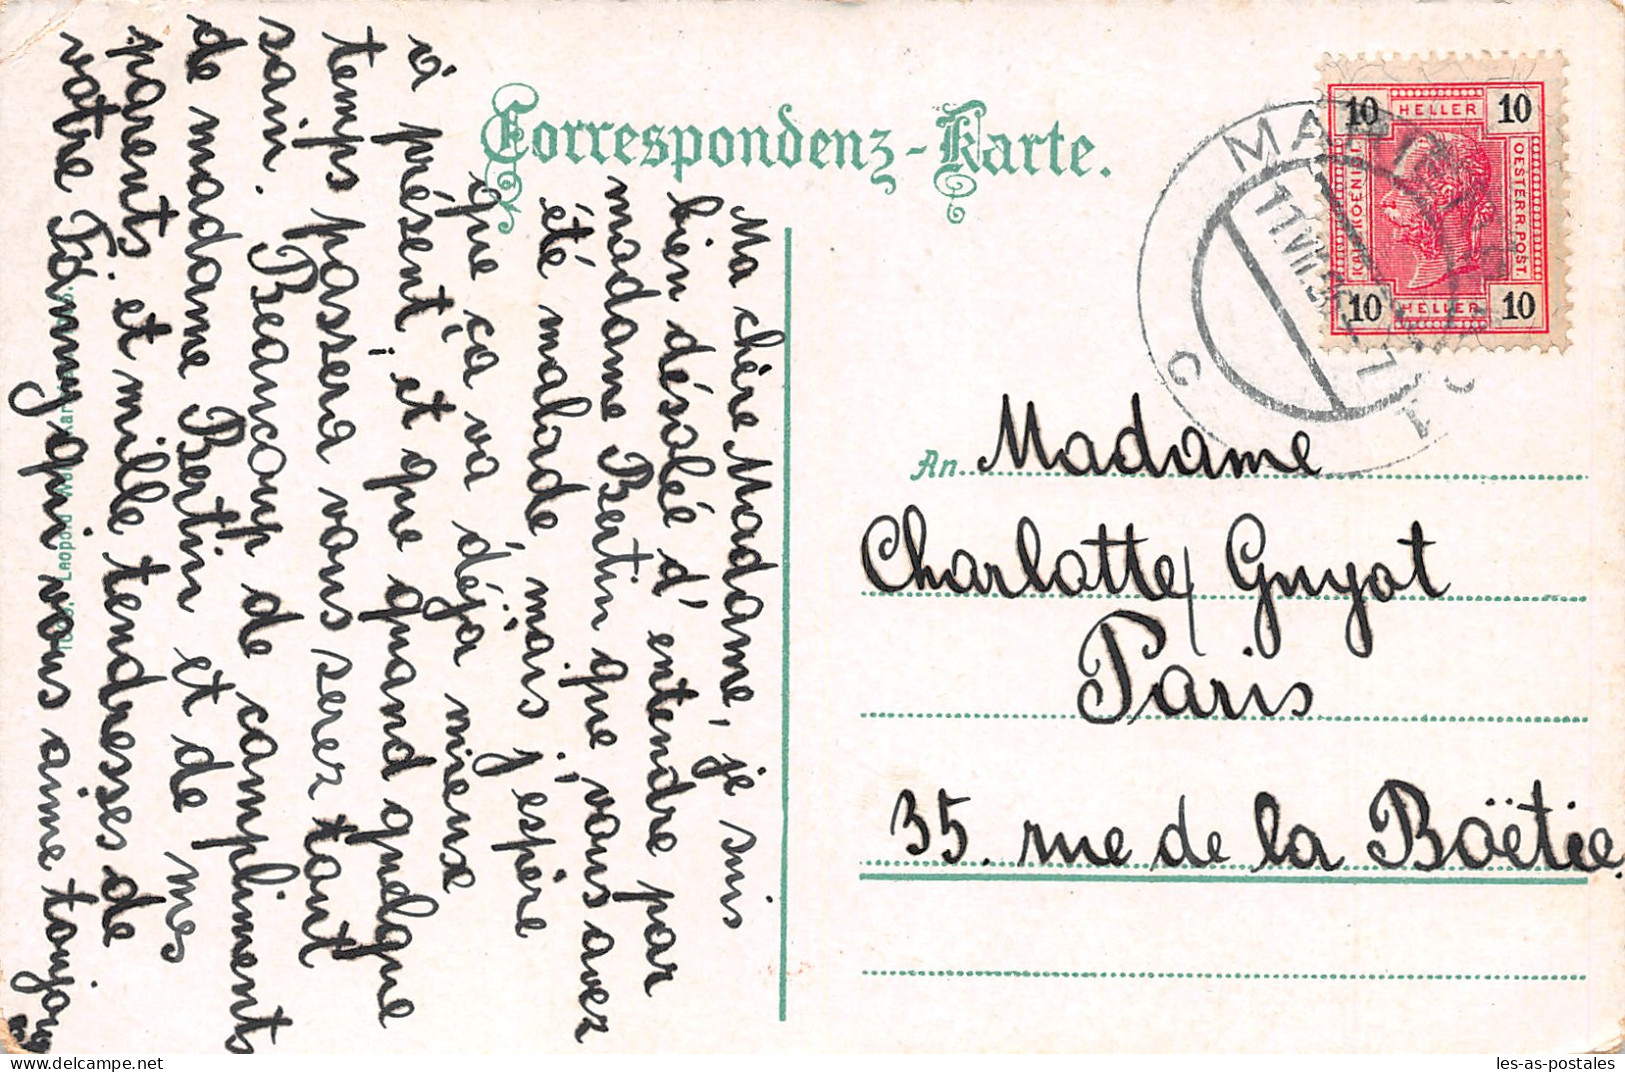 Correspondenz-Karte.
Ma chère Madame, je suis
bien désolée d'entendre par
madame Bertin que vous avez
été malade, mais j'espère
que ça va déja mieux
à présent, et que quand quelque
temps passera vous serez tout
sain. Beaucoup de compliments
de madame Bertin et de mes
parents, et mille tendresses de
votre Fanny qui vous aime toujours
10 HELLER 10
OESTERR. POST.
10 HELLER 10
An Madame
Charlotte Guyot
Paris
35. rue de la Boëtie.
les-as-postales